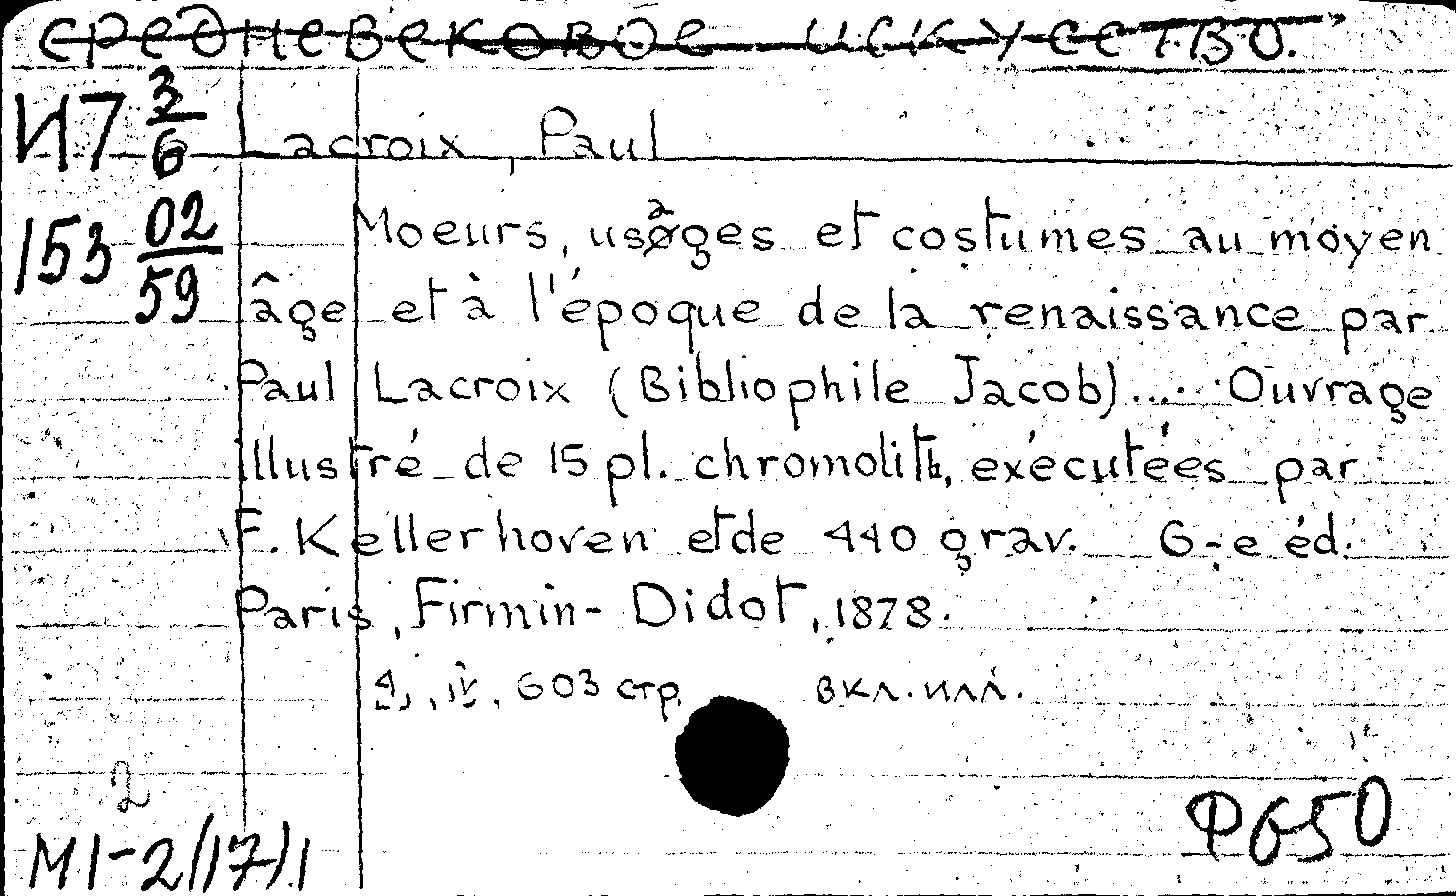 средневековое искусство.
И7 3/6
Lacroix, Paul
153 02/59
Moeurs, usages et costumes au moyen
âge et à l'époque de la renaissance par
Paul Lacroix (Bibliophile Jacob)..... Ouvrage
illustré de 15 pl. chromolith, exécutées par
F. Kellerhoven et de 440 grav. 6-e éd.
Paris, Firmin-Didot, 1878.
IV, 603 стр. вкл. илл.
2
Ф650
М1-2/17/1